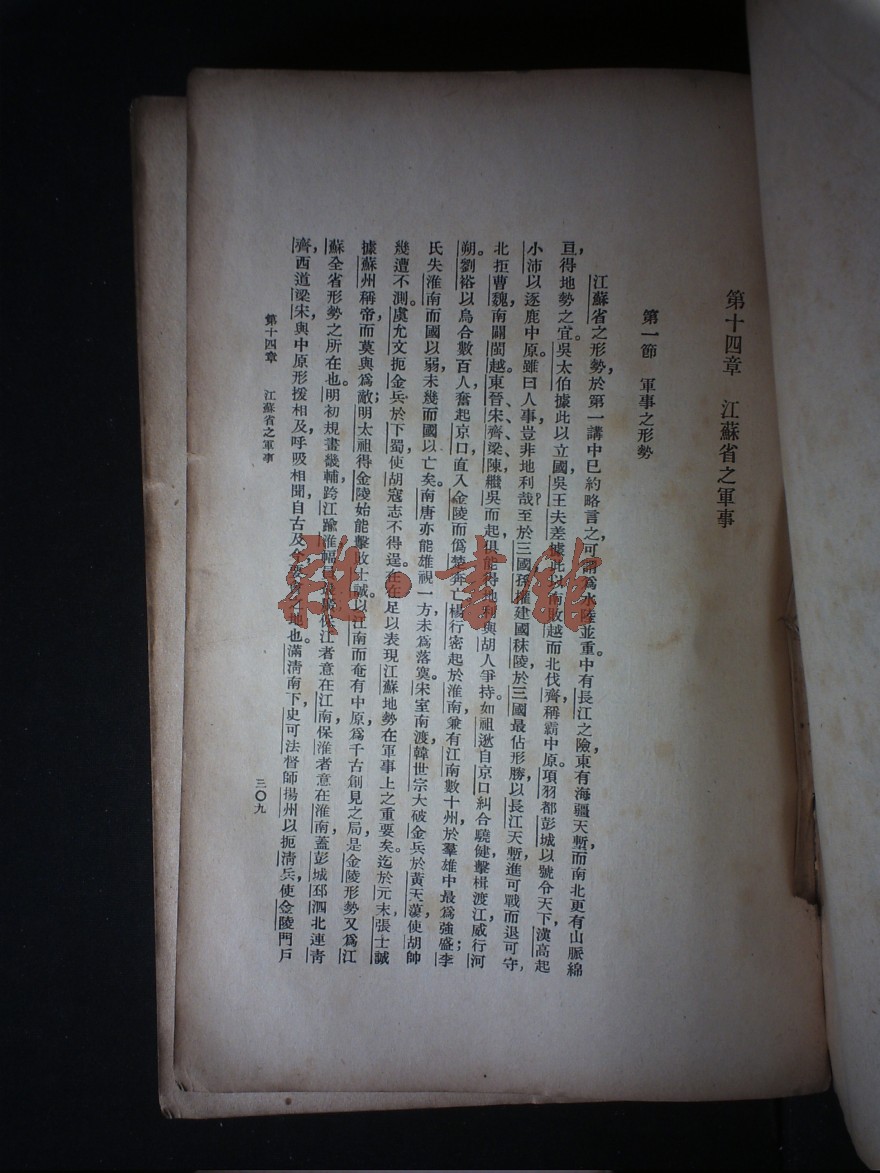 第十四章 江蘇省之軍事
第一節 軍事之形勢
江蘇省之形勢，於第一講中已約略言之，可謂爲水陸並重。中有長江之險，東有海疆天塹，而南北更有山脈綿
亘，得地勢之宜。吳太伯據此以立國，吳王夫差據此以南敗越而北伐齊，稱霸中原。項羽都彭城以號令天下，漢高起
小沛以逐鹿中原。雖曰人事，豈非地利哉？至於三國孫權建國秣陵，於三國最佔形勝，以長江天塹，進可戰而退可守，
北拒曹魏，南闢閩越。東晉、宋、齊、梁、陳，繼吳而起，俱能得地利，與胡人爭持。如祖逖自京口糾合驍健，擊楫渡江，威行河
朔。劉裕以烏合數百人，奮起京口，直入金陵，而僞楚奔亡。楊行密起於淮南，兼有江南數十州，於羣雄中最爲強盛；李
氏失淮南而國以弱，未幾而國以亡矣。南唐亦能雄視一方，未爲落寞。宋室南渡，韓世宗大破金兵於黃天蕩，使胡帥
幾遭不測。虞允文扼金兵於下蜀，使胡寇志不得逞。在在足以表現江蘇地勢在軍事上之重要矣。迄於元末，張士誠
據蘇州稱帝，而莫與爲敵；明太祖得金陵，始能擊敗士誠。以江南而奄有中原，爲千古創見之局，是金陵形勢，又爲江
蘇全省形勢之所在也。明初規畫畿輔，跨江踰淮，幅 江者意在江南，保淮者意在淮南，蓋彭城邳泗，北連青
齊，西道梁宋，與中原形援相及，呼吸相聞，自古及今 地也。滿清南下，史可法督師揚州以扼清兵，使金陵門戶
第十四章 江蘇省之軍事
三〇九
雜·書館